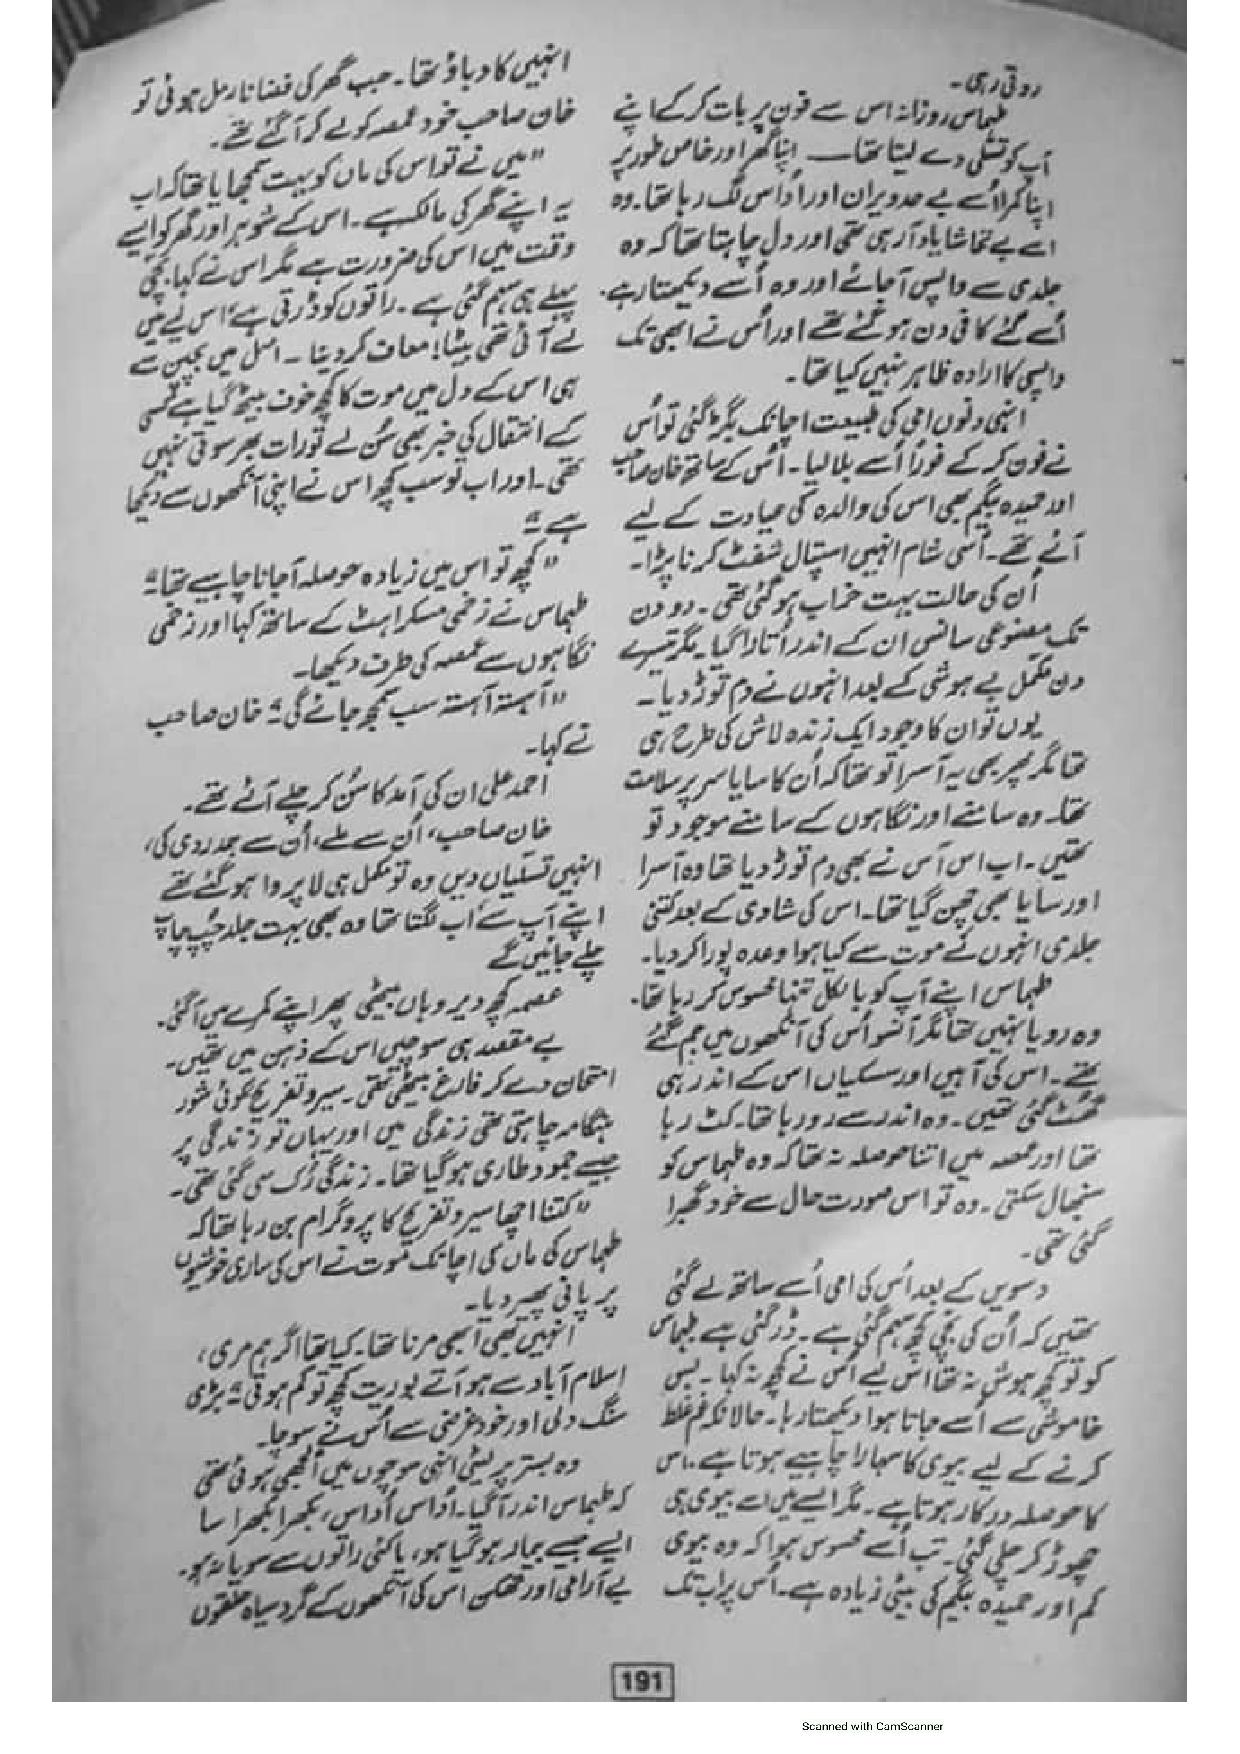 روتی رہی۔
طہماس روزانہ اس سے فون پر بات کر کے اپنے
آپ کو تسلی دے لیتا تھا — اپنا گھر اور خاص طور پر
اپنا کمرا اُسے بے حد ویران اور اُداس لگ رہا تھا۔ وہ
اسے بے تحاشا یاد آ رہی تھی اور دل چاہتا تھا کہ وہ
جلدی سے واپس آ جائے اور وہ اُسے دیکھتا رہے۔
اُسے گئے کافی دن ہو گئے تھے اور اُس نے ابھی تک
واپسی کا ارادہ ظاہر نہیں کیا تھا۔
انہی دنوں امی کی طبیعت اچانک بگڑ گئی تو اُس
نے فون کر کے فوراً اُسے بلا لیا۔ اُس کے ساتھ خان صاحب
اور حمیدہ بیگم بھی اس کی والدہ کی عیادت کے لیے
آئے تھے۔ اُسی شام انہیں اسپتال شفٹ کرنا پڑا۔
اُن کی حالت بہت خراب ہو گئی تھی۔ دو دن
تک مصنوعی سانس ان کے اندر اُتارا گیا۔ مگر تیسرے
دن مکمل بے ہوشی کے بعد انہوں نے دم توڑ دیا۔
یوں تو ان کا وجود ایک زندہ لاش کی طرح ہی
تھا مگر پھر بھی یہ آسرا تو تھا کہ اُن کا سایا سر پر سلامت
تھا۔ وہ سامنے اور نگاہوں کے سامنے موجود تو
تھیں۔ اب اس آس نے بھی دم توڑ دیا تھا وہ آسرا
اور سایا بھی چھن گیا تھا۔ اس کی شادی کے بعد کتنی
جلدی انہوں نے موت سے کیا ہوا وعدہ پورا کر دیا۔
طہماس اپنے آپ کو بالکل تنہا محسوس کر رہا تھا۔
وہ رویا نہیں تھا مگر آنسو اُس کی آنکھوں میں جم گئے
تھے۔ اس کی آہیں اور سسکیاں اس کے اندر ہی
گھٹ گئی تھیں۔ وہ اندر سے رو رہا تھا۔ کٹ رہا
تھا اور عصمہ میں اتنا حوصلہ نہ تھا کہ وہ طہماس کو
سنبھال سکتی۔ وہ تو اس صورت حال سے خود گھبرا
گئی تھی۔
دسویں کے بعد اُس کی امی اُسے ساتھ لے گئی
تھیں کہ اُن کی بچی کچھ سہم گئی ہے۔ ڈر گئی ہے طہماس
کو تو کچھ ہوش نہ تھا اس لیے اُس نے کچھ نہ کہا۔ بس
خاموشی سے اُسے جاتا ہوا دیکھتا رہا۔ حالانکہ غم غلط
کرنے کے لیے بیوی کا سہارا چاہیے ہوتا ہے۔ اس
کا حوصلہ درکار ہوتا ہے۔ مگر ایسے میں اسے بیوی ہی
چھوڑ کر چلی گئی۔ تب اُسے محسوس ہوا کہ وہ بیوی
کم اور حمیدہ بیگم کی بیٹی زیادہ ہے۔ اُس پر اب تک
انہیں کا دباؤ تھا۔ جب گھر کی فضا نارمل ہوئی تو
خان صاحب خود عصمہ کو لے کر آ گئے تھے۔
”میں نے تو اس کی ماں کو بہت سمجھایا تھا کہ اب
یہ اپنے گھر کی مالک ہے۔ اس کے شوہر اور گھر کو ایسے
وقت میں اس کی ضرورت ہے مگر اس نے کہا، بچی
پہلے ہی سہم گئی ہے۔ راتوں کو ڈرتی ہے اس لیے میں
لے آئی تھی بیٹا! معاف کر دینا۔ اصل میں بچپن سے
ہی اس کے دل میں موت کا کچھ خوف بیٹھ گیا ہے کسی
کے انتقال کی خبر بھی سُن لے تو رات بھر سوتی نہیں
تھی۔ اور اب تو سب کچھ اس نے اپنی آنکھوں سے دیکھا
ہے“
”کچھ تو اس میں زیادہ حوصلہ آ جانا چاہیے تھا“
طہماس نے زخمی مسکراہٹ کے ساتھ کہا اور زخمی
نگاہوں سے عصمہ کی طرف دیکھا۔
”آہستہ آہستہ سب سمجھ جائے گی“ خان صاحب
نے کہا۔
احمد علی ان کی آمد کا سُن کر چلے آئے تھے۔
خان صاحب، اُن سے ملے، اُن سے ہمدردی کی،
انہیں تسلیاں دیں وہ تو مکمل ہی لا پروا ہو گئے تھے
اپنے آپ سے اب لگتا تھا وہ بھی بہت جلد چُپ چاپ
چلے جائیں گے
عصمہ کچھ دیر وہاں بیٹھی پھر اپنے کمرے میں آ گئی۔
بے مقصد ہی سوچیں اس کے ذہن میں تھیں۔
امتحان دے کر فارغ بیٹھی تھی۔ سیر و تفریح کوئی شور
ہنگامہ چاہتی تھی زندگی میں اور یہاں تو زندگی پر
جیسے جمود طاری ہو گیا تھا۔ زندگی رُک سی گئی تھی۔
”کتنا اچھا سیر و تفریح کا پروگرام بن رہا تھا کہ
طہماس کی ماں کی اچانک موت نے اس کی ساری خوشیوں
پر پانی پھیر دیا۔
انہیں بھی ابھی مرنا تھا۔ کیا تھا اگر ہم مری،
اسلام آباد سے ہو آتے بوریت کچھ تو کم ہوتی“ بڑی
سنگ دلی اور خود غرضی سے اُس نے سوچا۔
وہ بستر پر لیٹی انہی سوچوں میں اُلجھی ہوئی تھی
کہ طہماس اندر آ گیا۔ اُداس اُداس، بکھرا بکھرا سا
ایسے جیسے بیمار ہو گیا ہو، یا کئی راتوں سے سویا نہ ہو۔
بے آرامی اور تھکن اس کی آنکھوں کے گرد سیاہ حلقوں
191
Scanned with CamScanner